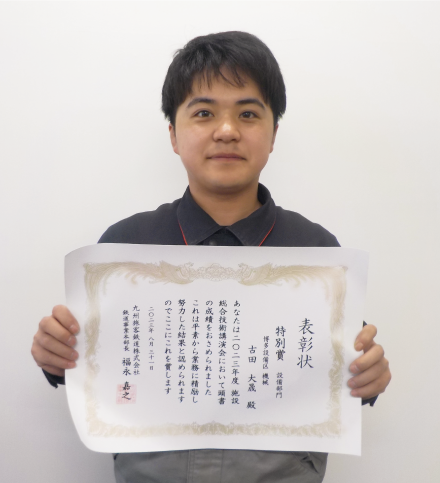 表彰状
特別賞 設備部門
博多設備区 機械
古田 大晟 殿
あなたは二〇二三年度 施設
総合技術講演会において頭書
の成績をおさめられました
これは平素から業務に積励し
努力した結果と認められます
のでここにこれを賞します
二〇二三年 八月 三十一日
九州旅客鉄道株式会社
鉄道事業本部長 福永 嘉之